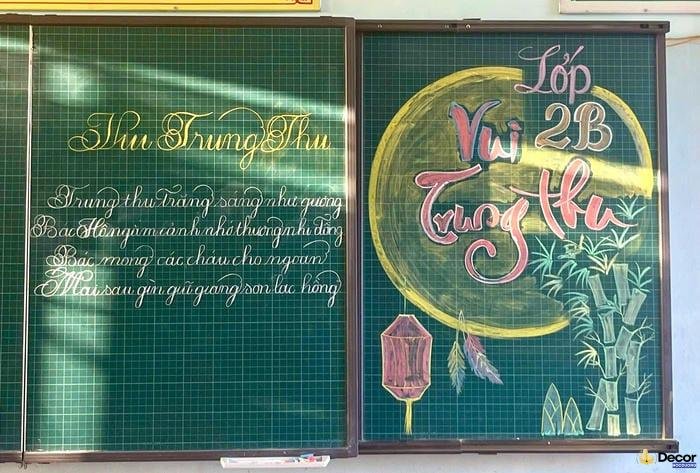 Thư Trung Thu
Trung thu trăng sáng như gương
Bác Hồ ngắm cảnh nhớ thương nhi đồng
Bác mong các cháu cho ngoan
Mai sau gìn giữ giang sơn lạc hồng
Lớp
2B
Vui
Trung thu
Decor